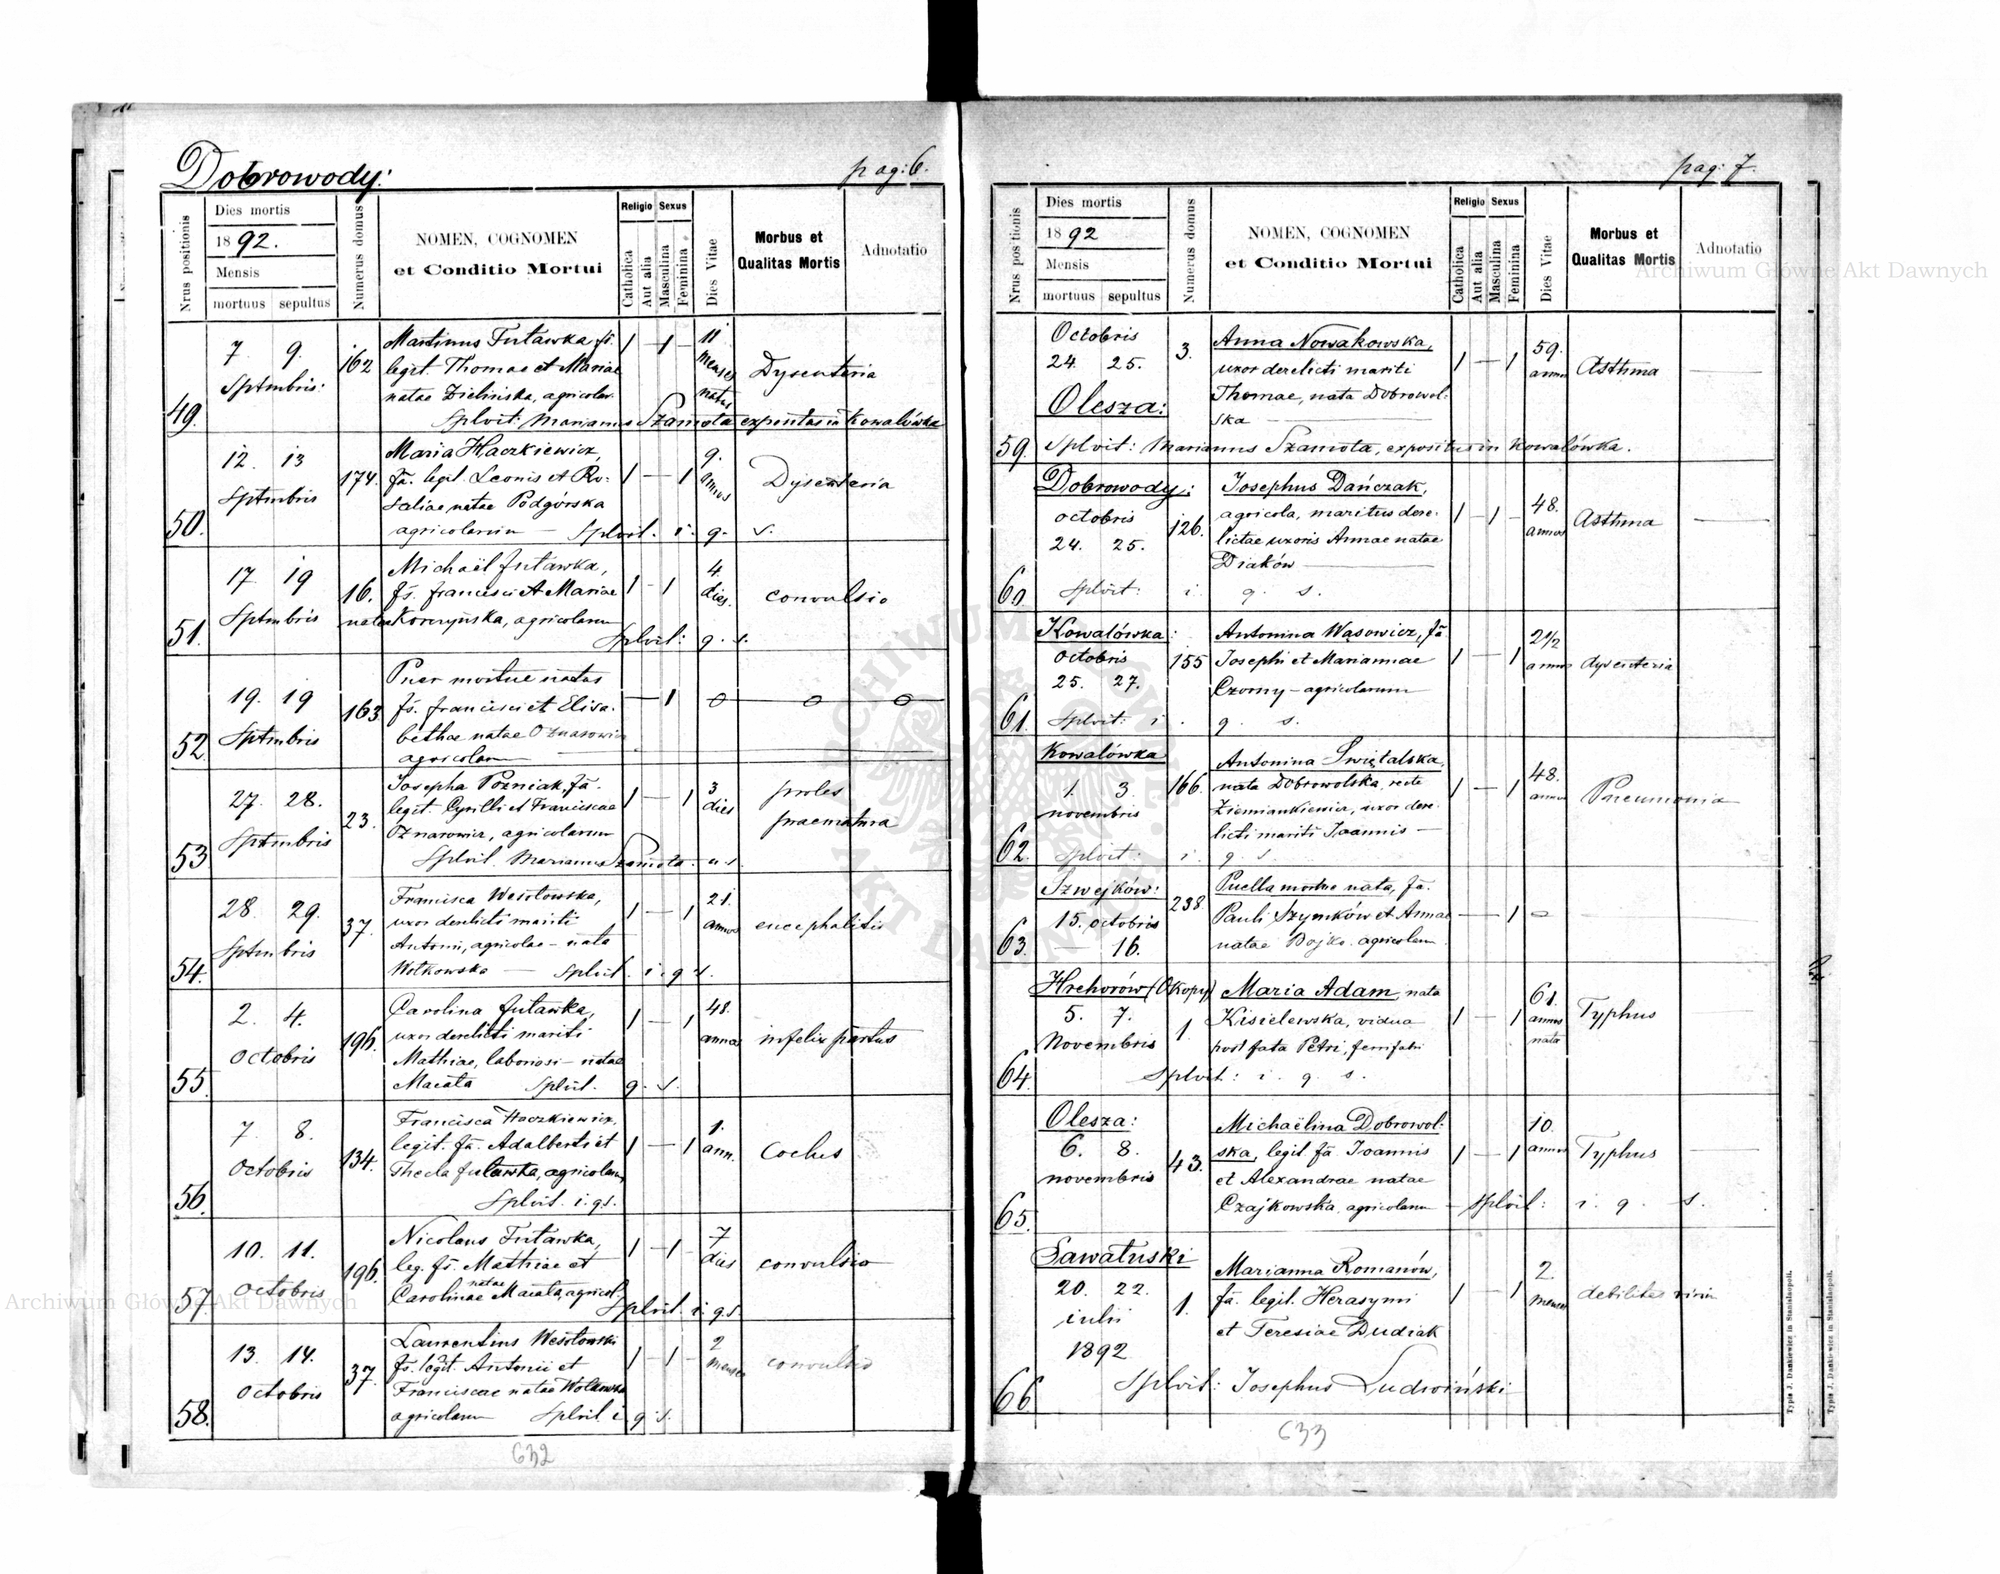 Dobrowody:
pag: 6.
Nrus positionis
Dies mortis
1892.
Mensis
mortuus sepultus
Numerus domus
NOMEN, COGNOMEN
et Conditio Mortui
Religio
Sexus
Catholica
Aut alia
Masculina
Feminina
Dies Vitae
Morbus et
Qualitas Mortis
Adnotatio
49.
7 9.
Sptmbris:
162
Martinus Futawka, fs.
legit. Thomae et Mariae
natae Zielińska, agricolar.
Splvit: Marianus Szamota expositus in Kowalówka
1 – 1
11
menses
natus
Dysenteria
50.
12. 13
Sptmbris
174.
Maria Haczkiewicz,
fa. legit. Leonis et Ro-
saliae natae Podgórska
agricolarum — Splvit. i. q. s.
1 – 1
9.
annos
Dysenteria
51.
17 19
Sptmbris
16.
Michaël Futawka,
fs. Francisci et Mariae
natae Korczyńska, agricolarum
Splvit: q. s.
1 – 1
4.
dies.
convulsio
52
19. 19
Sptmbris
163.
Puer mortue natus
fs. Francisci et Elisa-
bethae natae Oznarowicz
agricolarum
— 1
o — o — o
53
27. 28.
Sptmbris
23.
Josepha Pozniak, fa.
legit. Cyrilli et Franciscae
Oznarowicz, agricolarum
Splvit. Marianus Szamota
1 – 1
3
dies
proles
praematura
54.
28. 29.
Sptmbris
37.
Francisca Wesołowska,
uxor derelicti mariti
Antonii, agricolae – nata
Wołkowska — Splvit. i. q. s.
1 – 1
21.
annos
encephalitis
55.
2. 4.
Octobris
196.
Carolina Futawka,
uxor derelicti mariti
Mathiae, laboriosi – natae
Macata Splvit. q. s.
1 – 1
48.
annos
infelix partus
56.
7 8.
Octobris
134.
Francisca Haczkiewicz,
legit. fa. Adalberti et
Thecla Futawka, agricolarum
Splvit. i. q. s.
1 – 1
1.
ann.
57.
10. 11.
Octobris
196.
Nicolaus Futawka,
leg. fs. Mathiae et
Carolinae natae Macata, agricol.
Splvit. i. q. s.
1 – 1
7
dies
convulsio
58.
13. 14.
Octobris
37.
Laurentius Wesołowski
fs. legit. Antonii et
Franciscae natae
agricolarum Splvit i. q. s.
1 – 1
2
menses
convulsio
632
pag: 7.
Nrus positionis
Dies mortis
1892
Mensis
mortuus sepultus
Numerus domus
NOMEN, COGNOMEN
et Conditio Mortui
Religio
Sexus
Catholica
Aut alia
Masculina
Feminina
Dies Vitae
Morbus et
Qualitas Mortis
Adnotatio
Octobris
24. 25.
Olesza:
3.
Anna Nowakowska,
uxor derelicti mariti
Thomae, nata Dobrowol-
ska
1 – 1
59.
annos
Asthma
59. Splvit: Marianus Szamota, expositus in Kowalówka.
Dobrowody:
octobris
24. 25.
126.
Josephus Dańczak,
agricola, maritus dere-
lictae uxoris Annae natae
Diaków
1 – 1
48.
annos
Asthma
60. Splvit: i. q. s.
Kowalówka:
octobris
25. 27.
155
Antonina Wąsowicz, fa
Josephi et Mariannae
Czorny – agricolarum
1 – 1
2½
annos
dysenteria
61. Splvit: i. q. s.
Kowalówka
1. 3.
novembris
166.
Antonina Swiętalska,
nata Dobrowolska, recte
Ziemiankiewicz, uxor dere-
licti mariti Joannis —
1 – 1
48.
annos
Pneumonia
62. Splvit: i. q. s.
Szwejków:
15. octobris
— 16.
238
Puella mortue nata, fa.
Pauli Szymków et Annae
natae Bojko. agricolarum
— 1
63.
Hrehorów (Okopy)
5. 7.
Novembris
1.
Maria Adam, nata
Kisielewska, vidua
post fata Petri, ferrifabri
1 – 1
61.
annos
nata
Typhus
64. Splvit: i. q. s.
Olesza:
6. 8.
novembris
43.
Michaëlina Dobrowol-
ska, legit. fa. Joannis
et Alexandrae natae
Czajkowska. agricolarum – Splvit: i. q. s.
1 – 1
10.
annos
Typhus
65.
Sawałuski
20. 22.
iulii
1892
1.
Marianna Romanów,
fa. legit. Herasymi
et Teresiae Dudiak
1 – 1
2.
menses
debilitas
66 Splvit: Josephus Ludwiński
633
Typis J. Dankiewicz in Stanislaopoli.
Typis J. Dankiewicz in Stanislaopoli.
Archiwum Główne Akt Dawnych
Archiwum Główne Akt Dawnych
ARCHIWUM GŁÓWNE AKT DAWNYCH